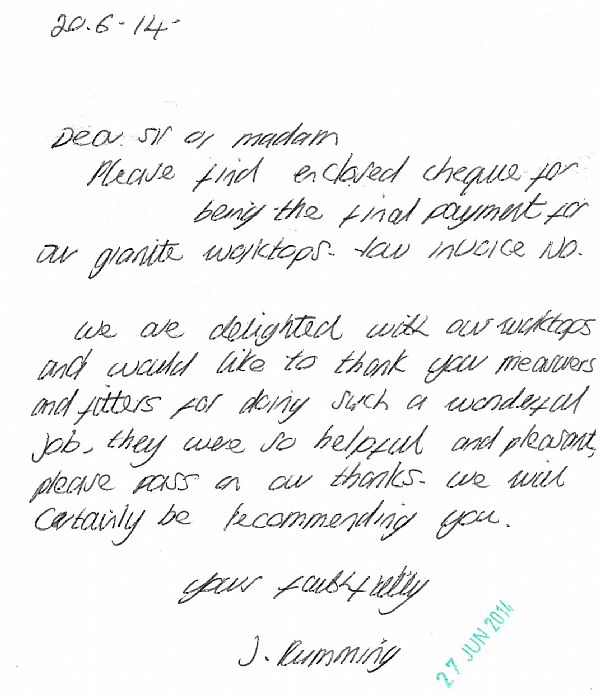 20.6-14-
Dear sir or madam
Please find enclosed cheque for
being the final payment for
our granite worktops- your invoice No.
we are delighted with our worktops
and would like to thank your measurers
and fitters for doing such a wonderful
job, they were so helpful and pleasant,
please pass on our thanks- we will
certainly be recommending you.
yours faithfully
J. Rumming
27 JUN 2014